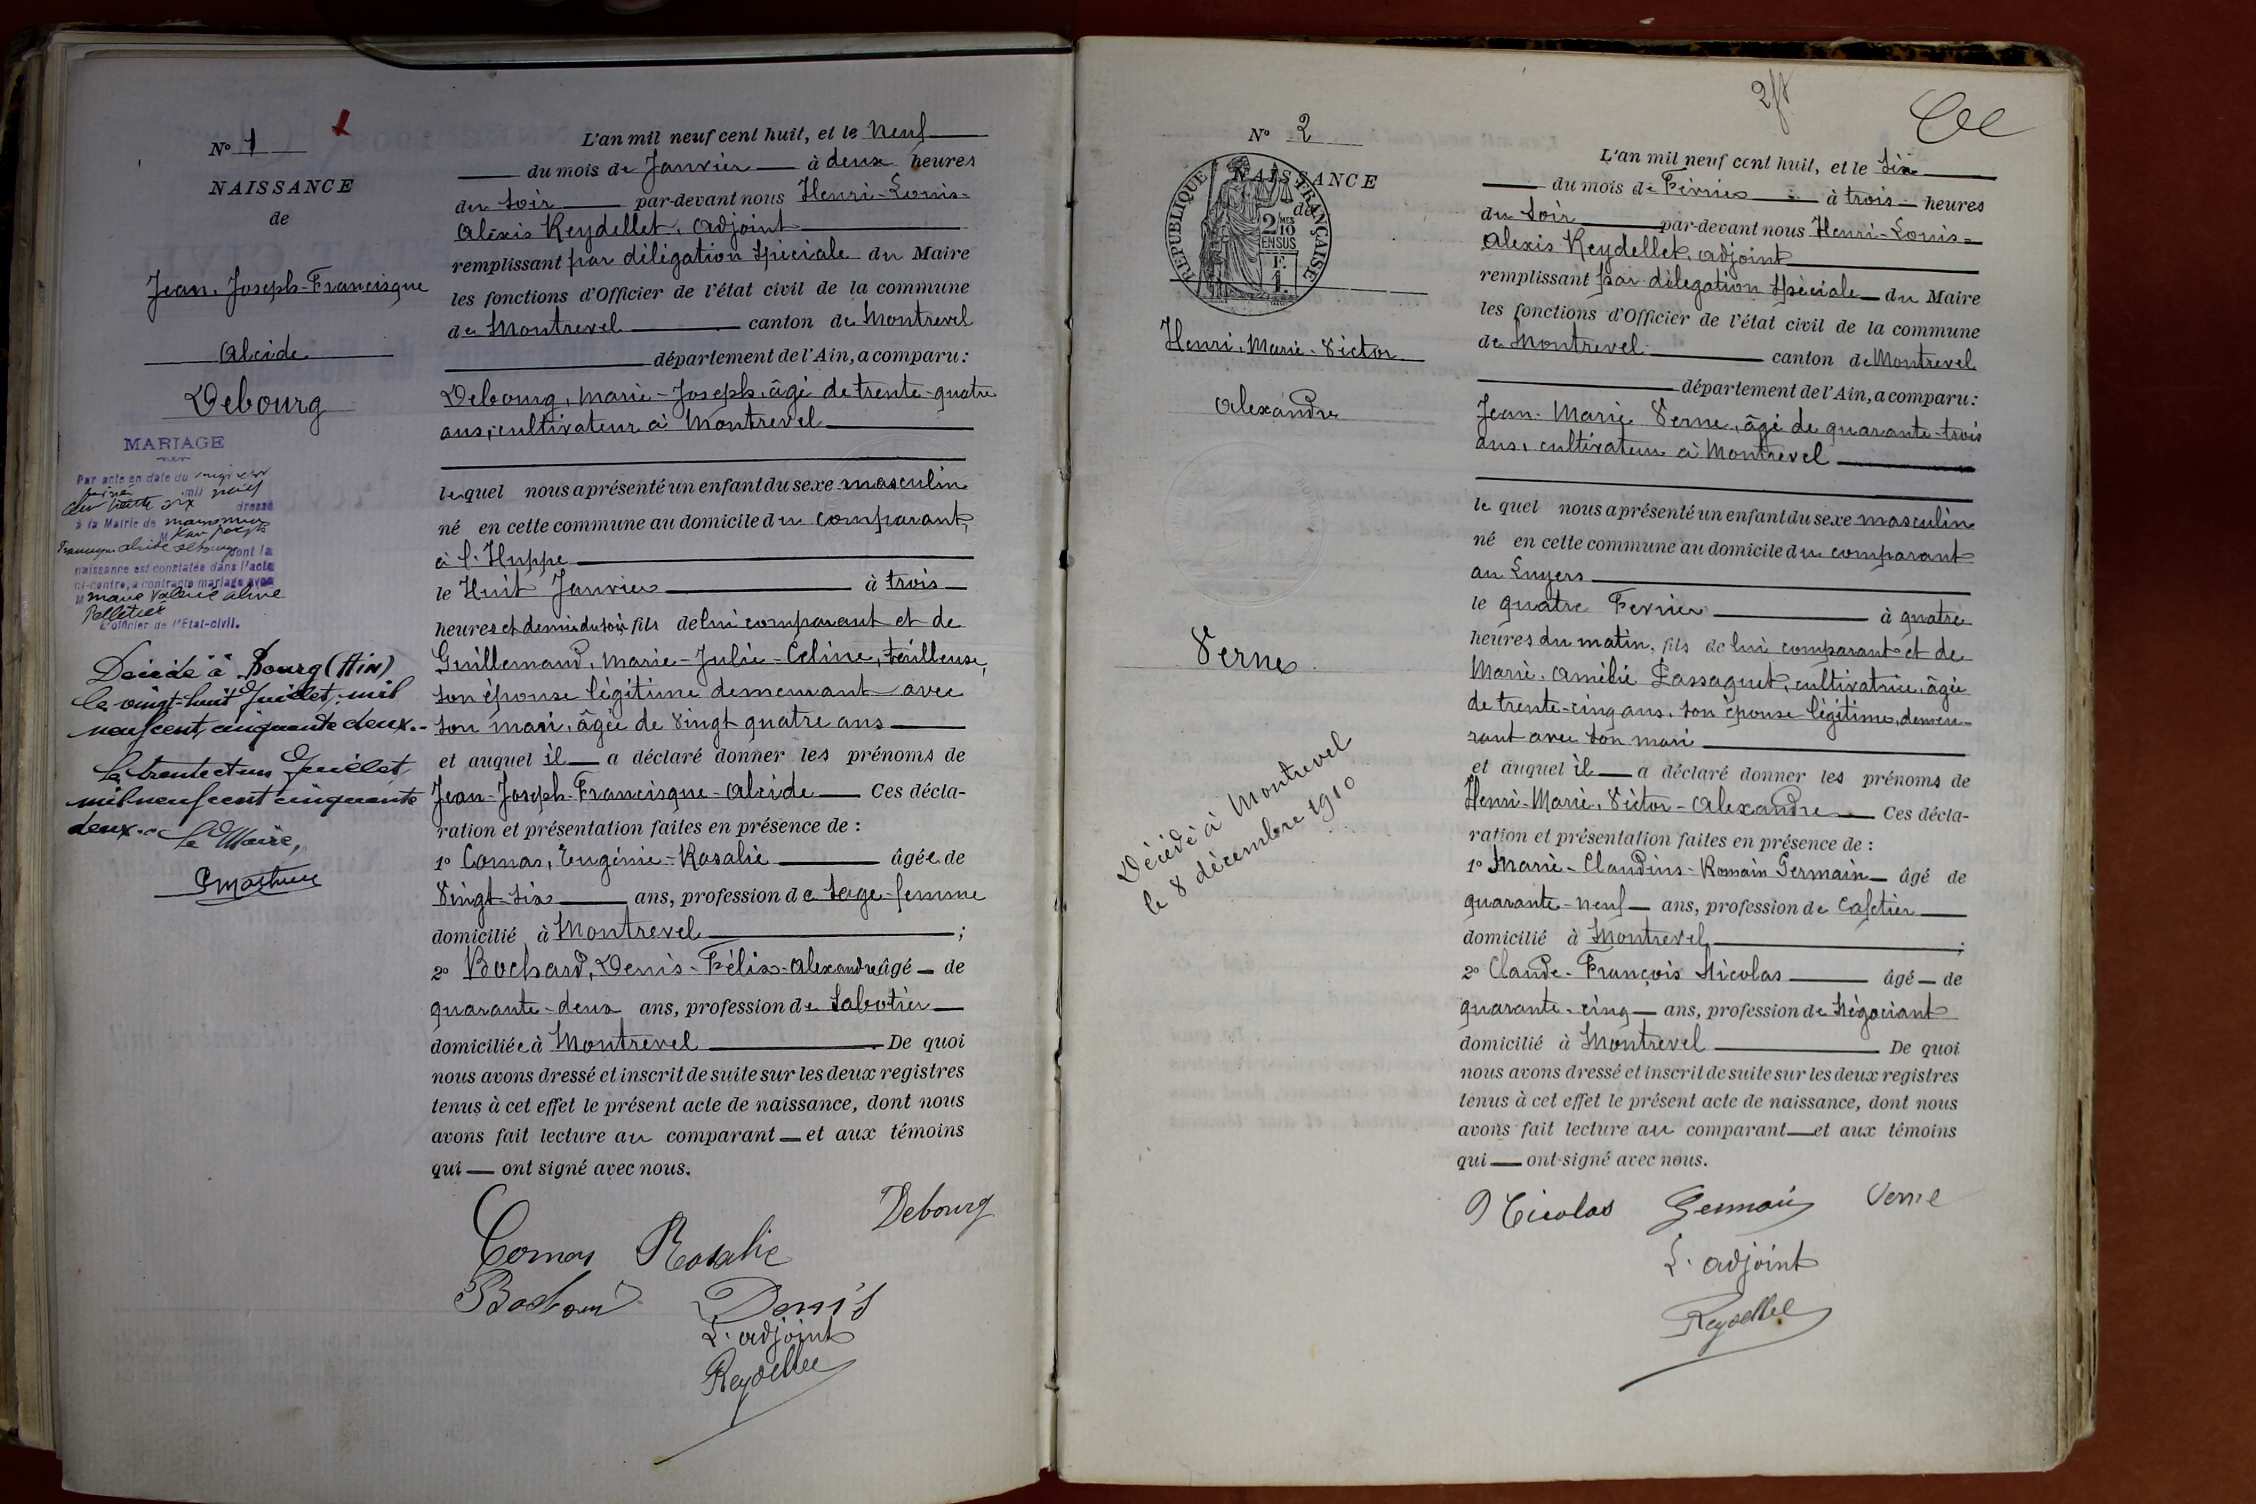 N° 1
NAISSANCE
de
Jean-Joseph-Francisque
Alcide
Debourg
MARIAGE
Par acte en date du
mil neuf
cent trente six dressé
à la Mairie de
M Jean Joseph
Francisque Alcide Debourg dont la
naissance est constatée dans l'acte
ci-contre, a contracté mariage avec
M Marie Valérie Aline
Pelletier
L'officier de l'Etat-civil.
Décédé à Bourg (Ain)
le vingt-huit Juillet, mil
neuf cent cinquante deux.-
Le trente et un Juillet
mil neuf cent cinquante
deux.- Le Maire,
L'an mil neuf cent huit, et le Neuf
du mois de Janvier à deux heures
du soir par-devant nous Henri-Louis-
Alexis Reydellet, adjoint
remplissant par délégation spéciale du Maire
les fonctions d'Officier de l'état civil de la commune
de Montrevel canton de Montrevel
département de l'Ain, a comparu:
Debourg, Marie-Joseph, âgé de trente-quatre
ans, cultivateur à Montrevel
lequel nous a présenté un enfant du sexe masculin
né en cette commune au domicile du comparant,
à l'Huppe
le Huit Janvier à trois
heures et demie du soir fils de lui comparant et de
Guillemaud, Marie-Julie-Celine, tailleuse,
son épouse légitime demeurant avec
son mari, âgée de vingt quatre ans
et auquel il a déclaré donner les prénoms de
Jean-Joseph-Francisque-Alcide Ces décla-
ration et présentation faites en présence de :
1° Comas, Eugénie-Rosalie âgée de
vingt-six ans, profession de sage-femme
domicilié à Montrevel ;
2° Bochard, Denis-Félix-Alexandre âgé de
quarante-deux ans, profession de sabotier
domiciliée à Montrevel De quoi
nous avons dressé et inscrit de suite sur les deux registres
tenus à cet effet le présent acte de naissance, dont nous
avons fait lecture au comparant et aux témoins
qui ont signé avec nous.
Debourg
Comas Rosalie
Bochard Denis
L'adjoint
Reydellet
N° 2
NAISSANCE
de
REPUBLIQUE FRANÇAISE
2 MES
10
EN SUS
F.
1
Henri-Marie-Victor
Alexandre
Verne
Décédé à Montrevel
le 8 décembre 1910
L'an mil neuf cent huit, et le six
du mois de Février à trois heures
du soir par-devant nous Henri-Louis-
Alexis Reydellet, adjoint
remplissant par délégation spéciale du Maire
les fonctions d'Officier de l'état civil de la commune
de Montrevel canton de Montrevel
département de l'Ain, a comparu:
Jean-Marie Verne, âgé de quarante-trois
ans, cultivateur à Montrevel
le quel nous a présenté un enfant du sexe masculin
né en cette commune au domicile du comparant
au Luyers
le quatre Fevrier à quatre
heures du matin, fils de lui comparant et de
Marie-Amélie Passaquet, cultivatrice, âgée
de trente-cinq ans, son épouse légitime, demeu-
rant avec son mari
et auquel il a déclaré donner les prénoms de
Henri-Marie-Victor-Alexandre Ces décla-
ration et présentation faites en présence de :
1° Marie-Claudius-Romain Germain âgé de
quarante-neuf ans, profession de cafetier
domicilié à Montrevel ;
2° Claude-François Nicolas âgé de
quarante-cinq ans, profession de Négociant
domicilié à Montrevel De quoi
nous avons dressé et inscrit de suite sur les deux registres
tenus à cet effet le présent acte de naissance, dont nous
avons fait lecture au comparant et aux témoins
qui ont signé avec nous.
Nicolas Germain Verne
L'adjoint
Reydellet